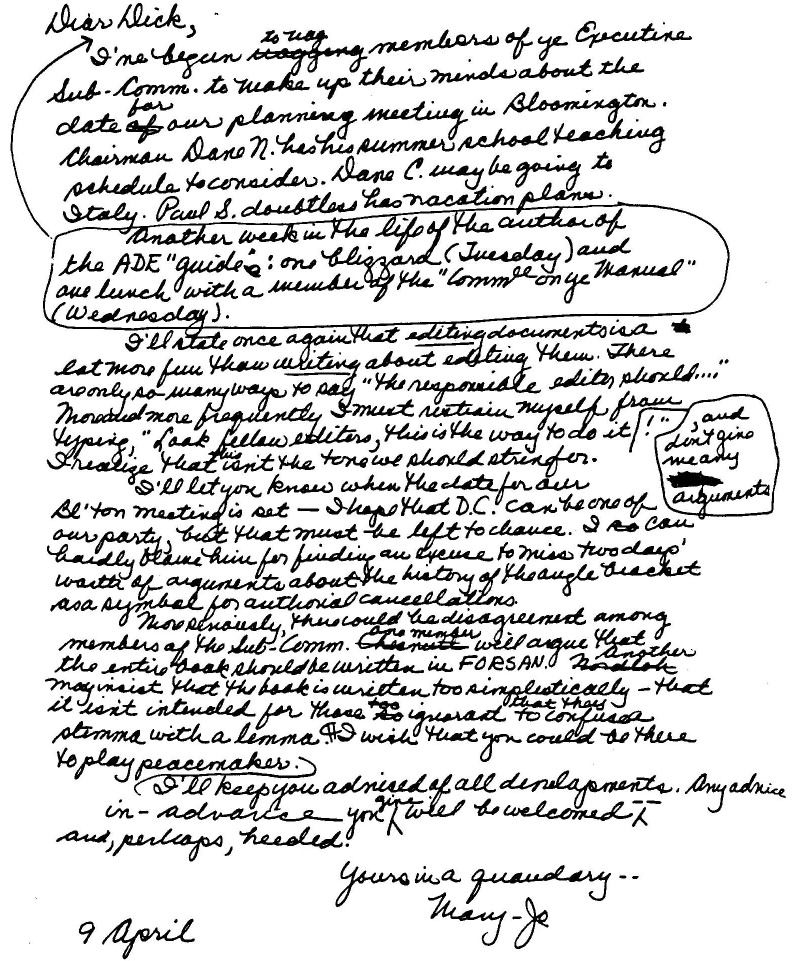 Dear Dick,
to nag
I've begun nagging members of ye Executive
Sub-Comm. to make up their minds about the
for
date of our planning meeting in Bloomington.
Chairman Dane N. has his summer school teaching
schedule to consider. Dane C. may be going to
Italy. Paul S. doubtless has vacation plans.
Another week in the life of the author of
the ADE "guide": one blizzard (Tuesday) and
one lunch with a member of the "Commee on ye Manual"
(Wednesday).
I'll state once again that editing documents is a
lot more fun than writing about editing them. There
are only so many ways to say "the responsible editor should...."
More and more frequently I must restrain myself from
typing, "Look fellow editors, this is the way to do it!"
, and
don't give
me any
arguments
this
I realize that isn't the tone we should strive for.
I'll let you know when the date for our
Bl'ton meeting is set — I hope that D.C. can be one of
our party, but that must be left to chance. I so can
hardly blame him for finding an excuse to miss two days'
worth of arguments about the history of the angle bracket
as a symbol for authorial cancellations.
More seriously, there could be disagreement among
one member
members of the Sub-Comm. Chesnutt will argue that
Another
the entire book should be written in FORSAN. Nordloh
may insist that the book is written too simplistically – that
too that they
it isn't intended for those so ignorant to confuse a
stemma with a lemma. ¶I wish that you could be there
to play peacemaker.
I'll keep you advised of all developments. Any advice
give
in-advance you will be welcomed
and, perhaps, heeded.
Yours in a quandary --
Mary-Jo
9 April